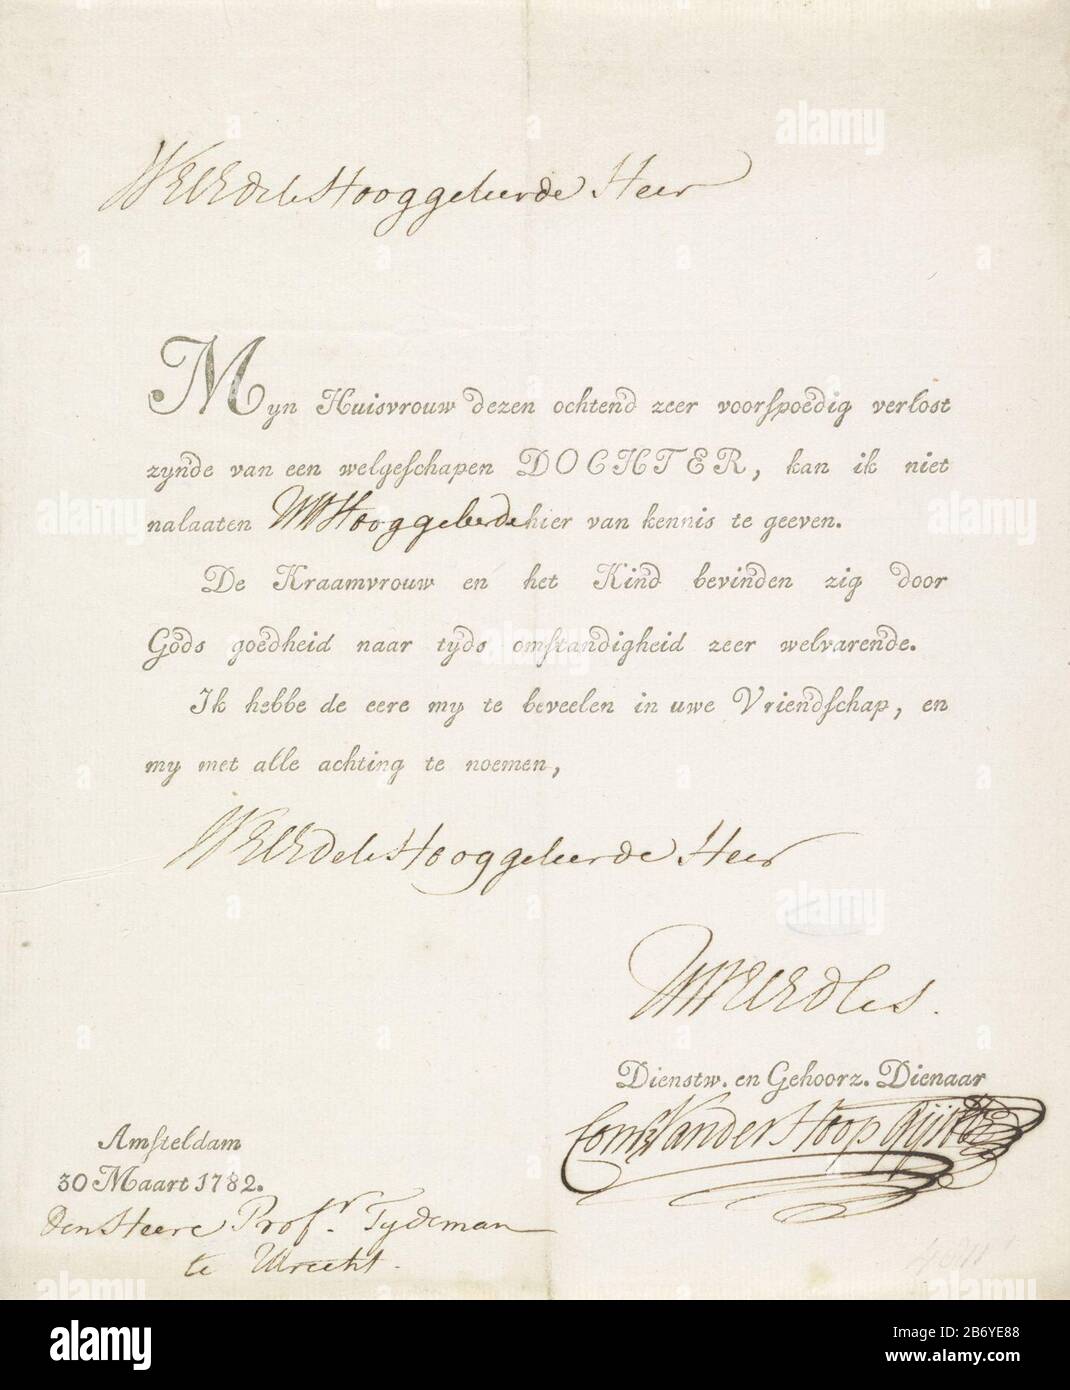 WelEdele Hooggeleerde Heer
Myn Huisvrouw dezen ochtend zeer voorspoedig verlost
zynde van een welgeschapen DOCHTER, kan ik niet
nalaaten UW Hooggeleerde hier van kennis te geeven.
De Kraamvrouw en het Kind bevinden zig door
Gods goedheid naar tyds omstandigheid zeer welvarende.
Ik hebbe de eere my te beveelen in uwe Vriendschap, en
my met alle achting te noemen,
WelEdele Hooggeleerde Heer
UWelEdles.
Dienstw. en Gehoorz. Dienaar
Corn. Van der Hoop Gijsb
Amsteldam
30 Maart 1782.
Den Heere Profr. Tydeman
te Utrecht.
alamy
Image ID: B2BYE88
www.alamy.com